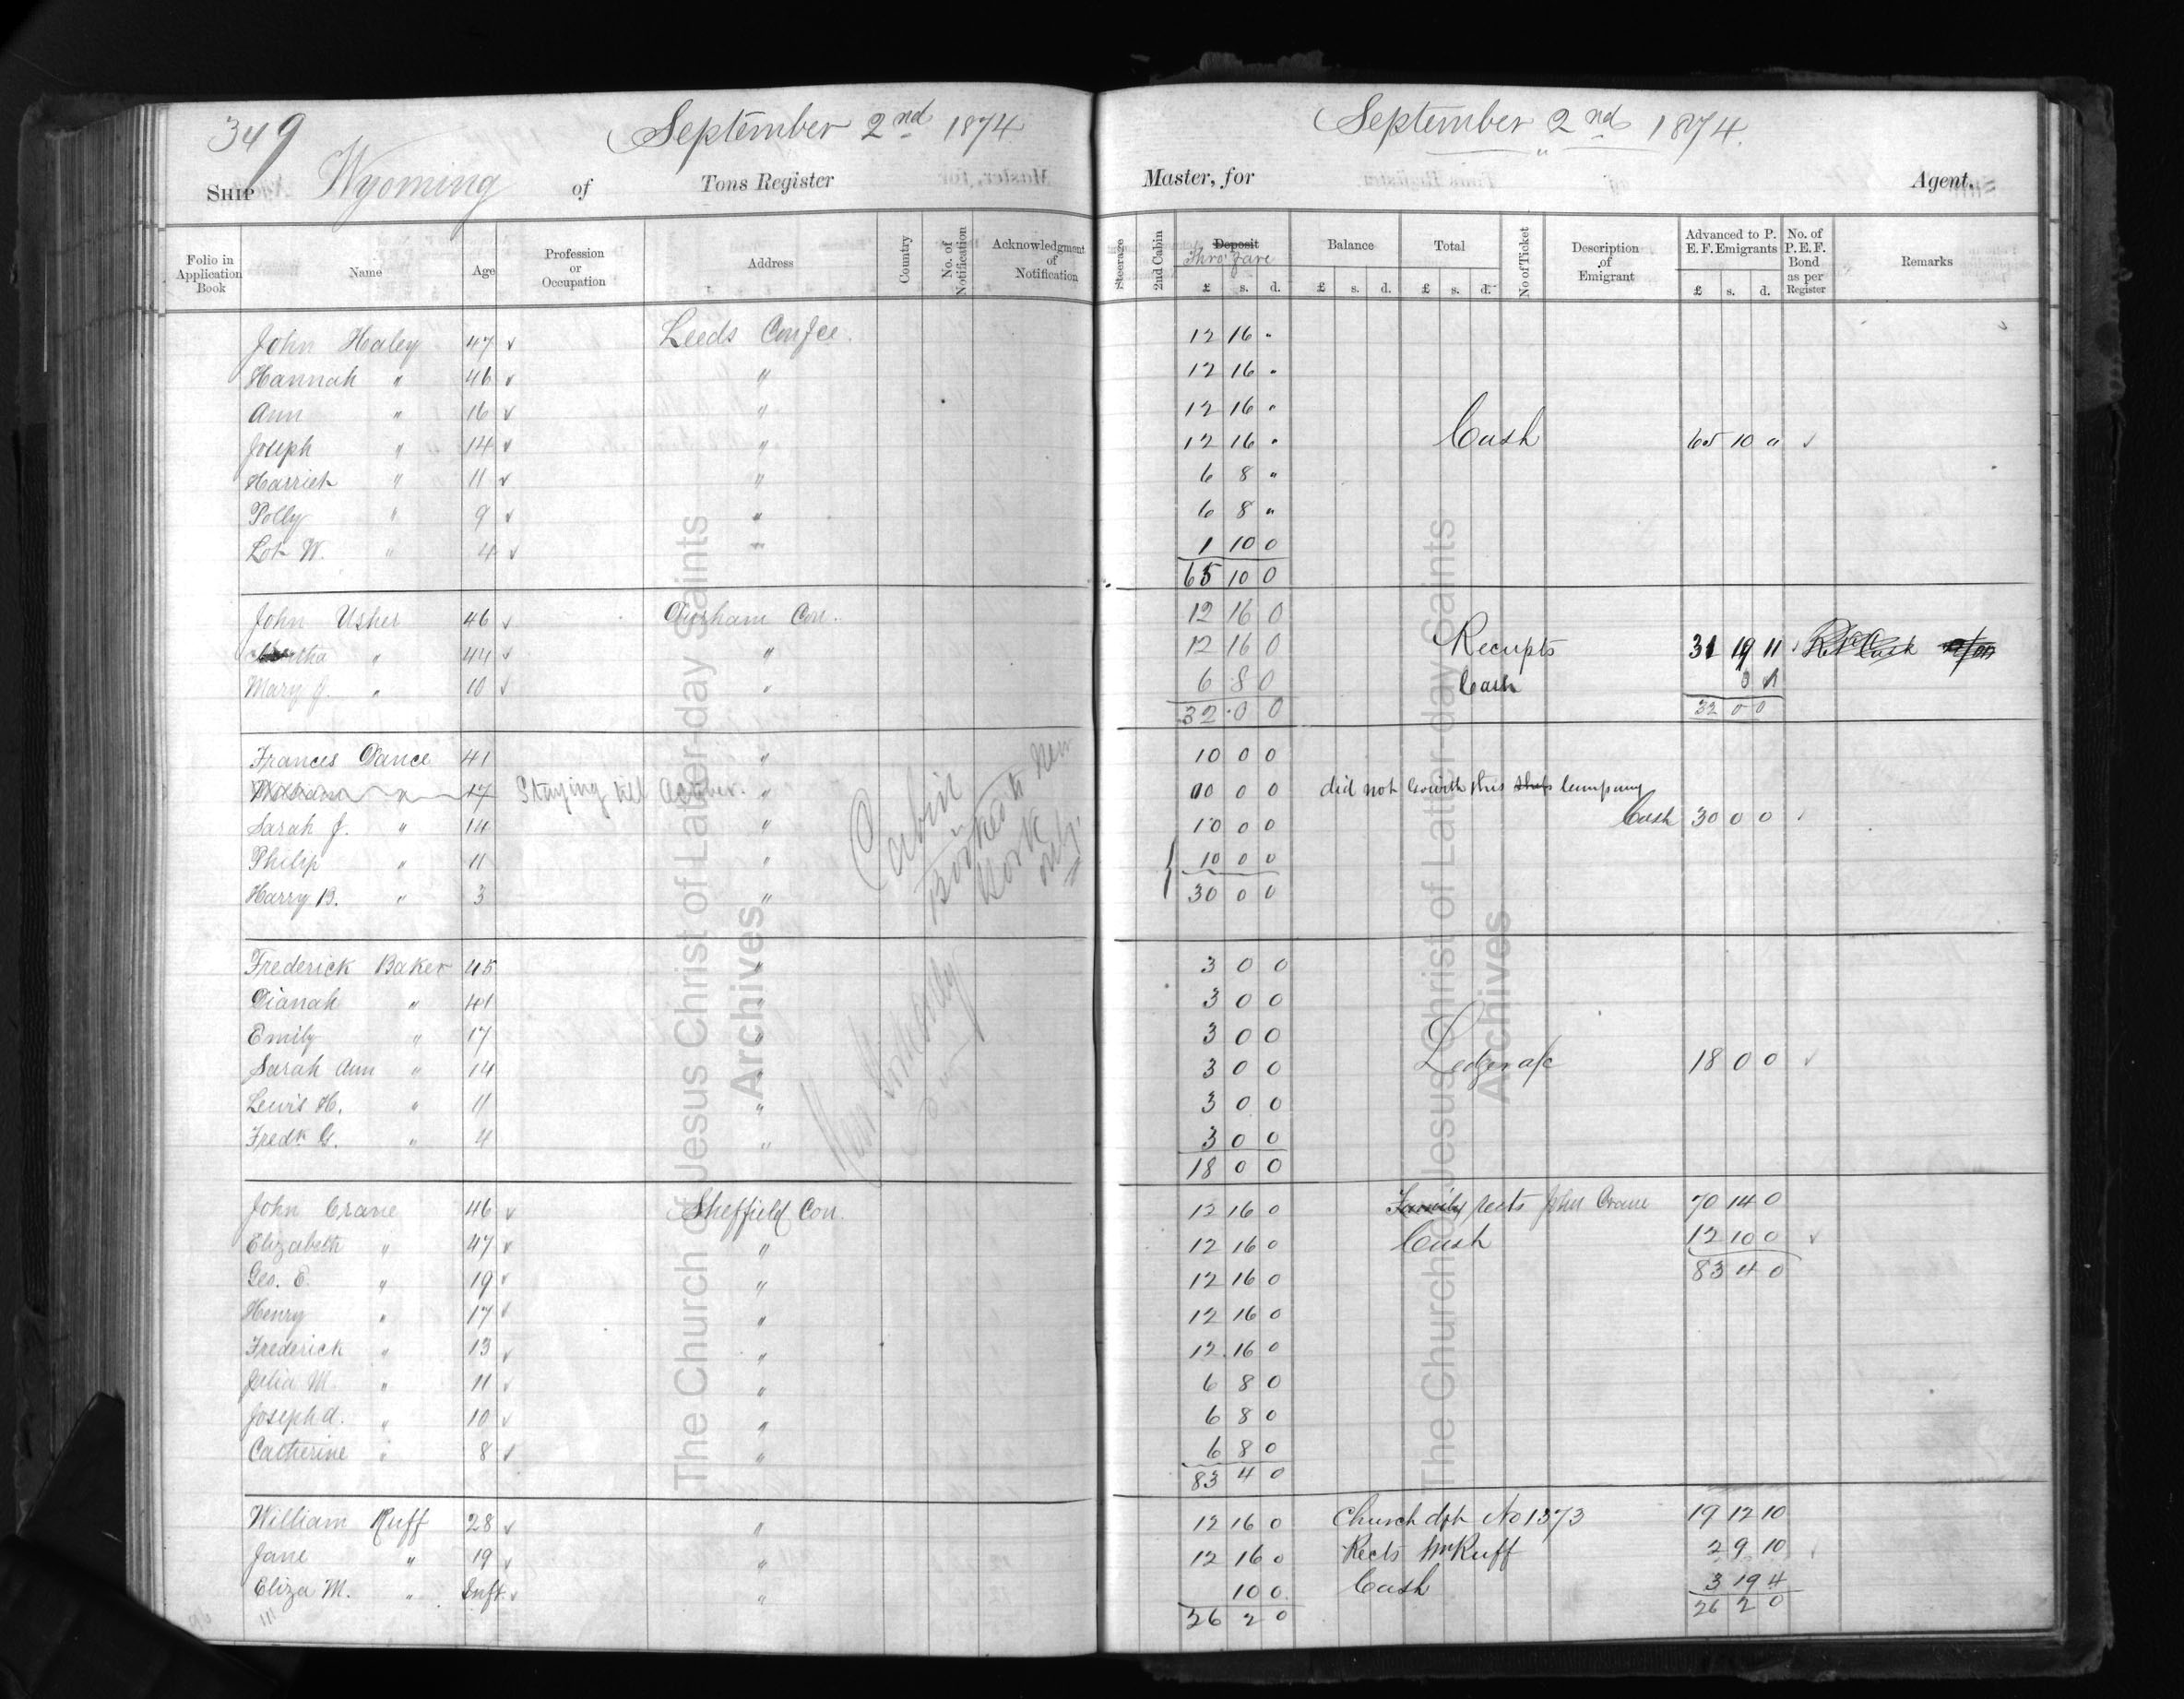 349
September 2nd 1874
September 2nd 1874.
SHIP Wyoming of Tons Register Master, for Agent.
Folio in Application Book Name Age Profession or Occupation Address Country No. of Notification Acknowledgment of Notification Steerage 2nd Cabin Deposit Thro' fare £ s. d. Balance £ s. d. Total £ s. d. No of Ticket Description of Emigrant Advanced to P. E. F. Emigrants £ s. d. No. of P. E. F. Bond as per Register Remarks
John Haley 47 ✓ Leeds Confce. 12 16 "
Hannah " 46 ✓ " 12 16 "
Ann " 16 ✓ " 12 16 "
Joseph " 14 ✓ " 12 16 " Cash 65 10 " ✓
Harriet " 11 ✓ " 6 8 "
Polly " 9 ✓ " 6 8 "
Lot W. " 4 ✓ " 1 10 0
65 10 0
John Usher 46 ✓ Durham Con. 12 16 0
" 44 ✓ " 12 16 0 Receipts 31 19 11
Mary J. " 10 ✓ " 6 8 0 Cash
32 0 0 32 0 0
Frances Dance 41 " 10 0 0
William " 17 Staying till October. " 10 0 0 did not go with this ship company
Sarah J. " 14 " 10 0 0 Cash 30 0 0 ✓
Philip " 11 " 10 0 0
Harry B. " 3 " 30 0 0
Cabin
Booked to New
York
only.
Frederick Baker 45 " 3 0 0
Dianah " 41 " 3 0 0
Emily " 17 " 3 0 0
Sarah Ann " 14 " 3 0 0 Ledger a/c 18 0 0 ✓
Lewis H. " 11 " 3 0 0
Fredk G. " 4 " 3 0 0
18 0 0
John Crane 46 ✓ Sheffield Con. 12 16 0 Family rects John Crane 70 14 0
Elizabeth " 47 ✓ " 12 16 0 Cash 12 10 0 ✓
Geo. E. " 19 ✓ " 12 16 0 83 4 0
Henry " 17 ✓ " 12 16 0
Frederick " 13 ✓ " 12 16 0
Julia M. " 11 ✓ " 6 8 0
Joseph A. " 10 ✓ " 6 8 0
Catherine " 8 ✓ " 6 8 0
83 4 0
William Ruff 28 ✓ " 12 16 0 Church dft No 1373 19 12 10
Jane " 19 ✓ " 12 16 0 Rects Wm Ruff 2 9 10
Eliza M. " Inft. ✓ " 10 0 Cash 3 19 4
26 2 0 26 2 0
The Church of Jesus Christ of Latter-day Saints
Archives
The Church of Jesus Christ of Latter-day Saints
Archives